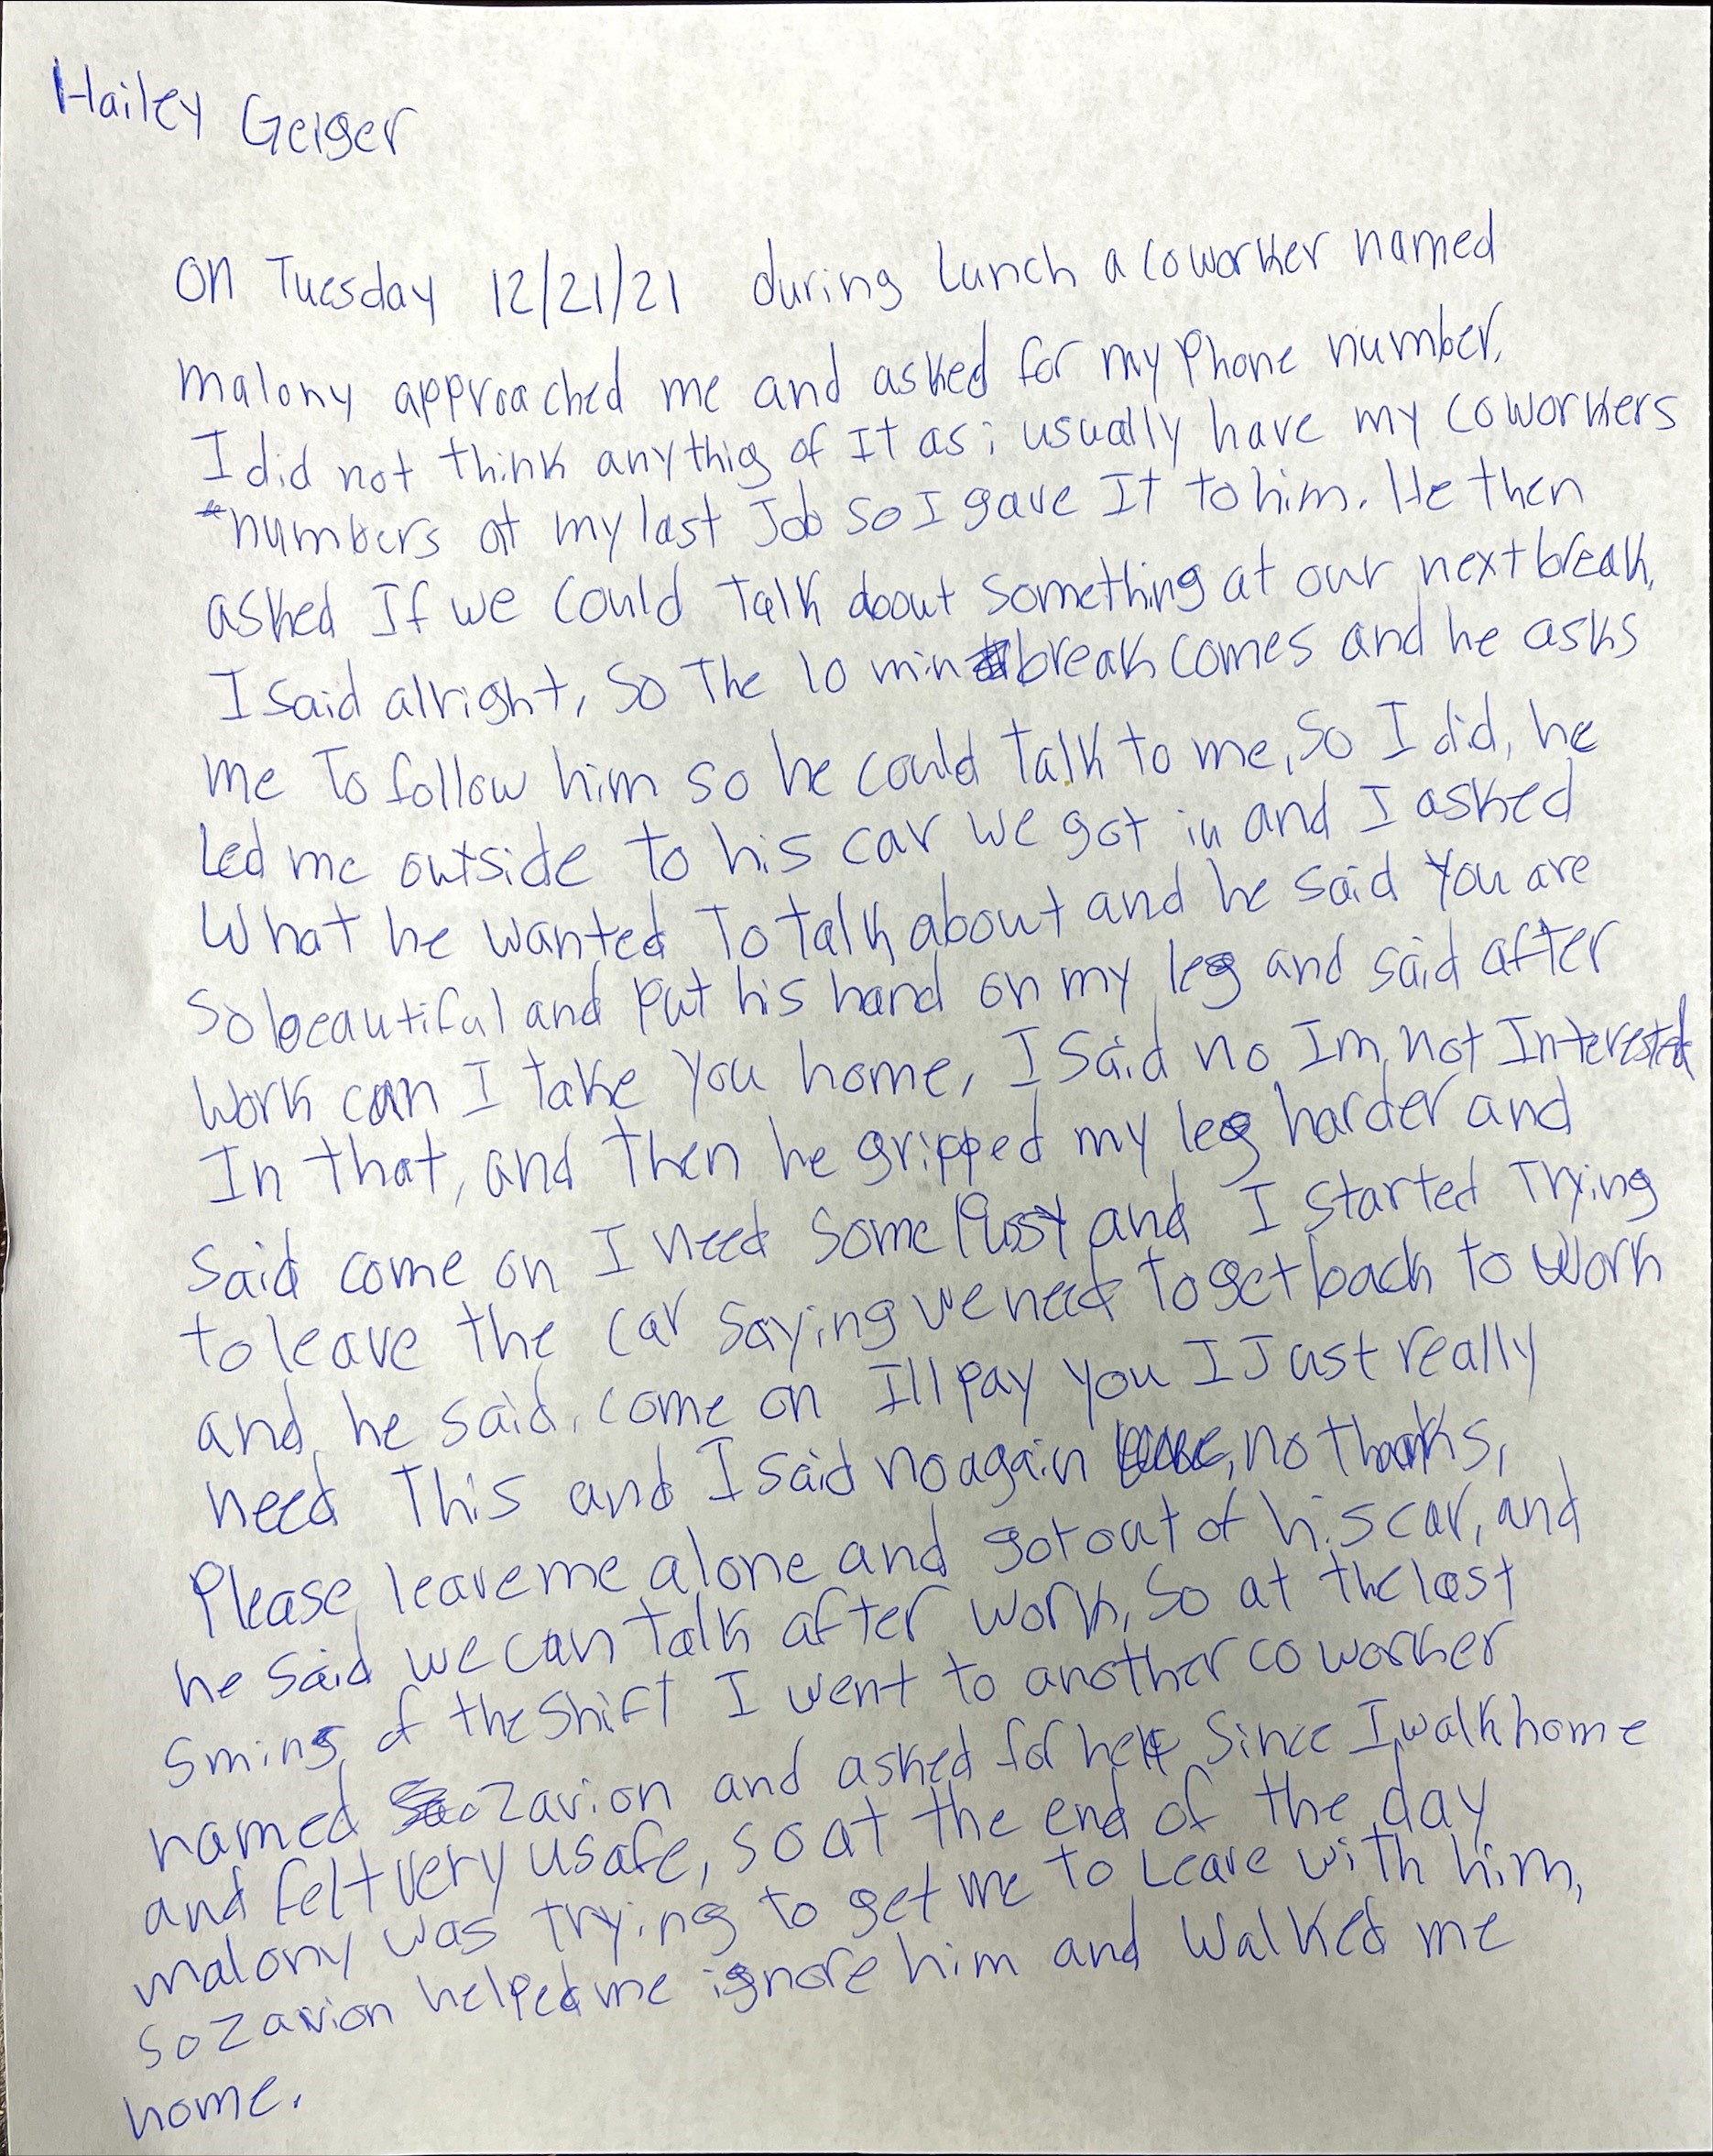 Hailey Geiger
On Tuesday 12/21/21 during Lunch a coworker named
malony approached me and asked for my Phone number.
I did not think anythig of It as i usually have my coworkers
numbers at my last Job so I gave It to him. He then
asked If we could Talk about something at our next break,
I said alright, So The 10 min break comes and he asks
me To follow him so he could talk to me, So I did, he
Led me outside to his car we got in and I asked
What he wanted To talk about and he said You are
So beautiful and put his hand on my leg and said after
work can I take you home, I said no Im not Interested
In that, and then he gripped my leg harder and
said come on I need some Pussy and I started Trying
to leave the car saying we need To get back to work
and he said, come on Ill pay you I Just really
need This and I said no again, no thanks,
Please leave me alone and got out of his car, and
he said we can talk after work, So at the last
5mins of the Shift I went to another coworker
named Zavion and asked for help Since I walk home
and felt very usafe, so at the end of the day
malony was trying to get me to Leave with him,
so Zavion helped me ignore him and walked me
home.